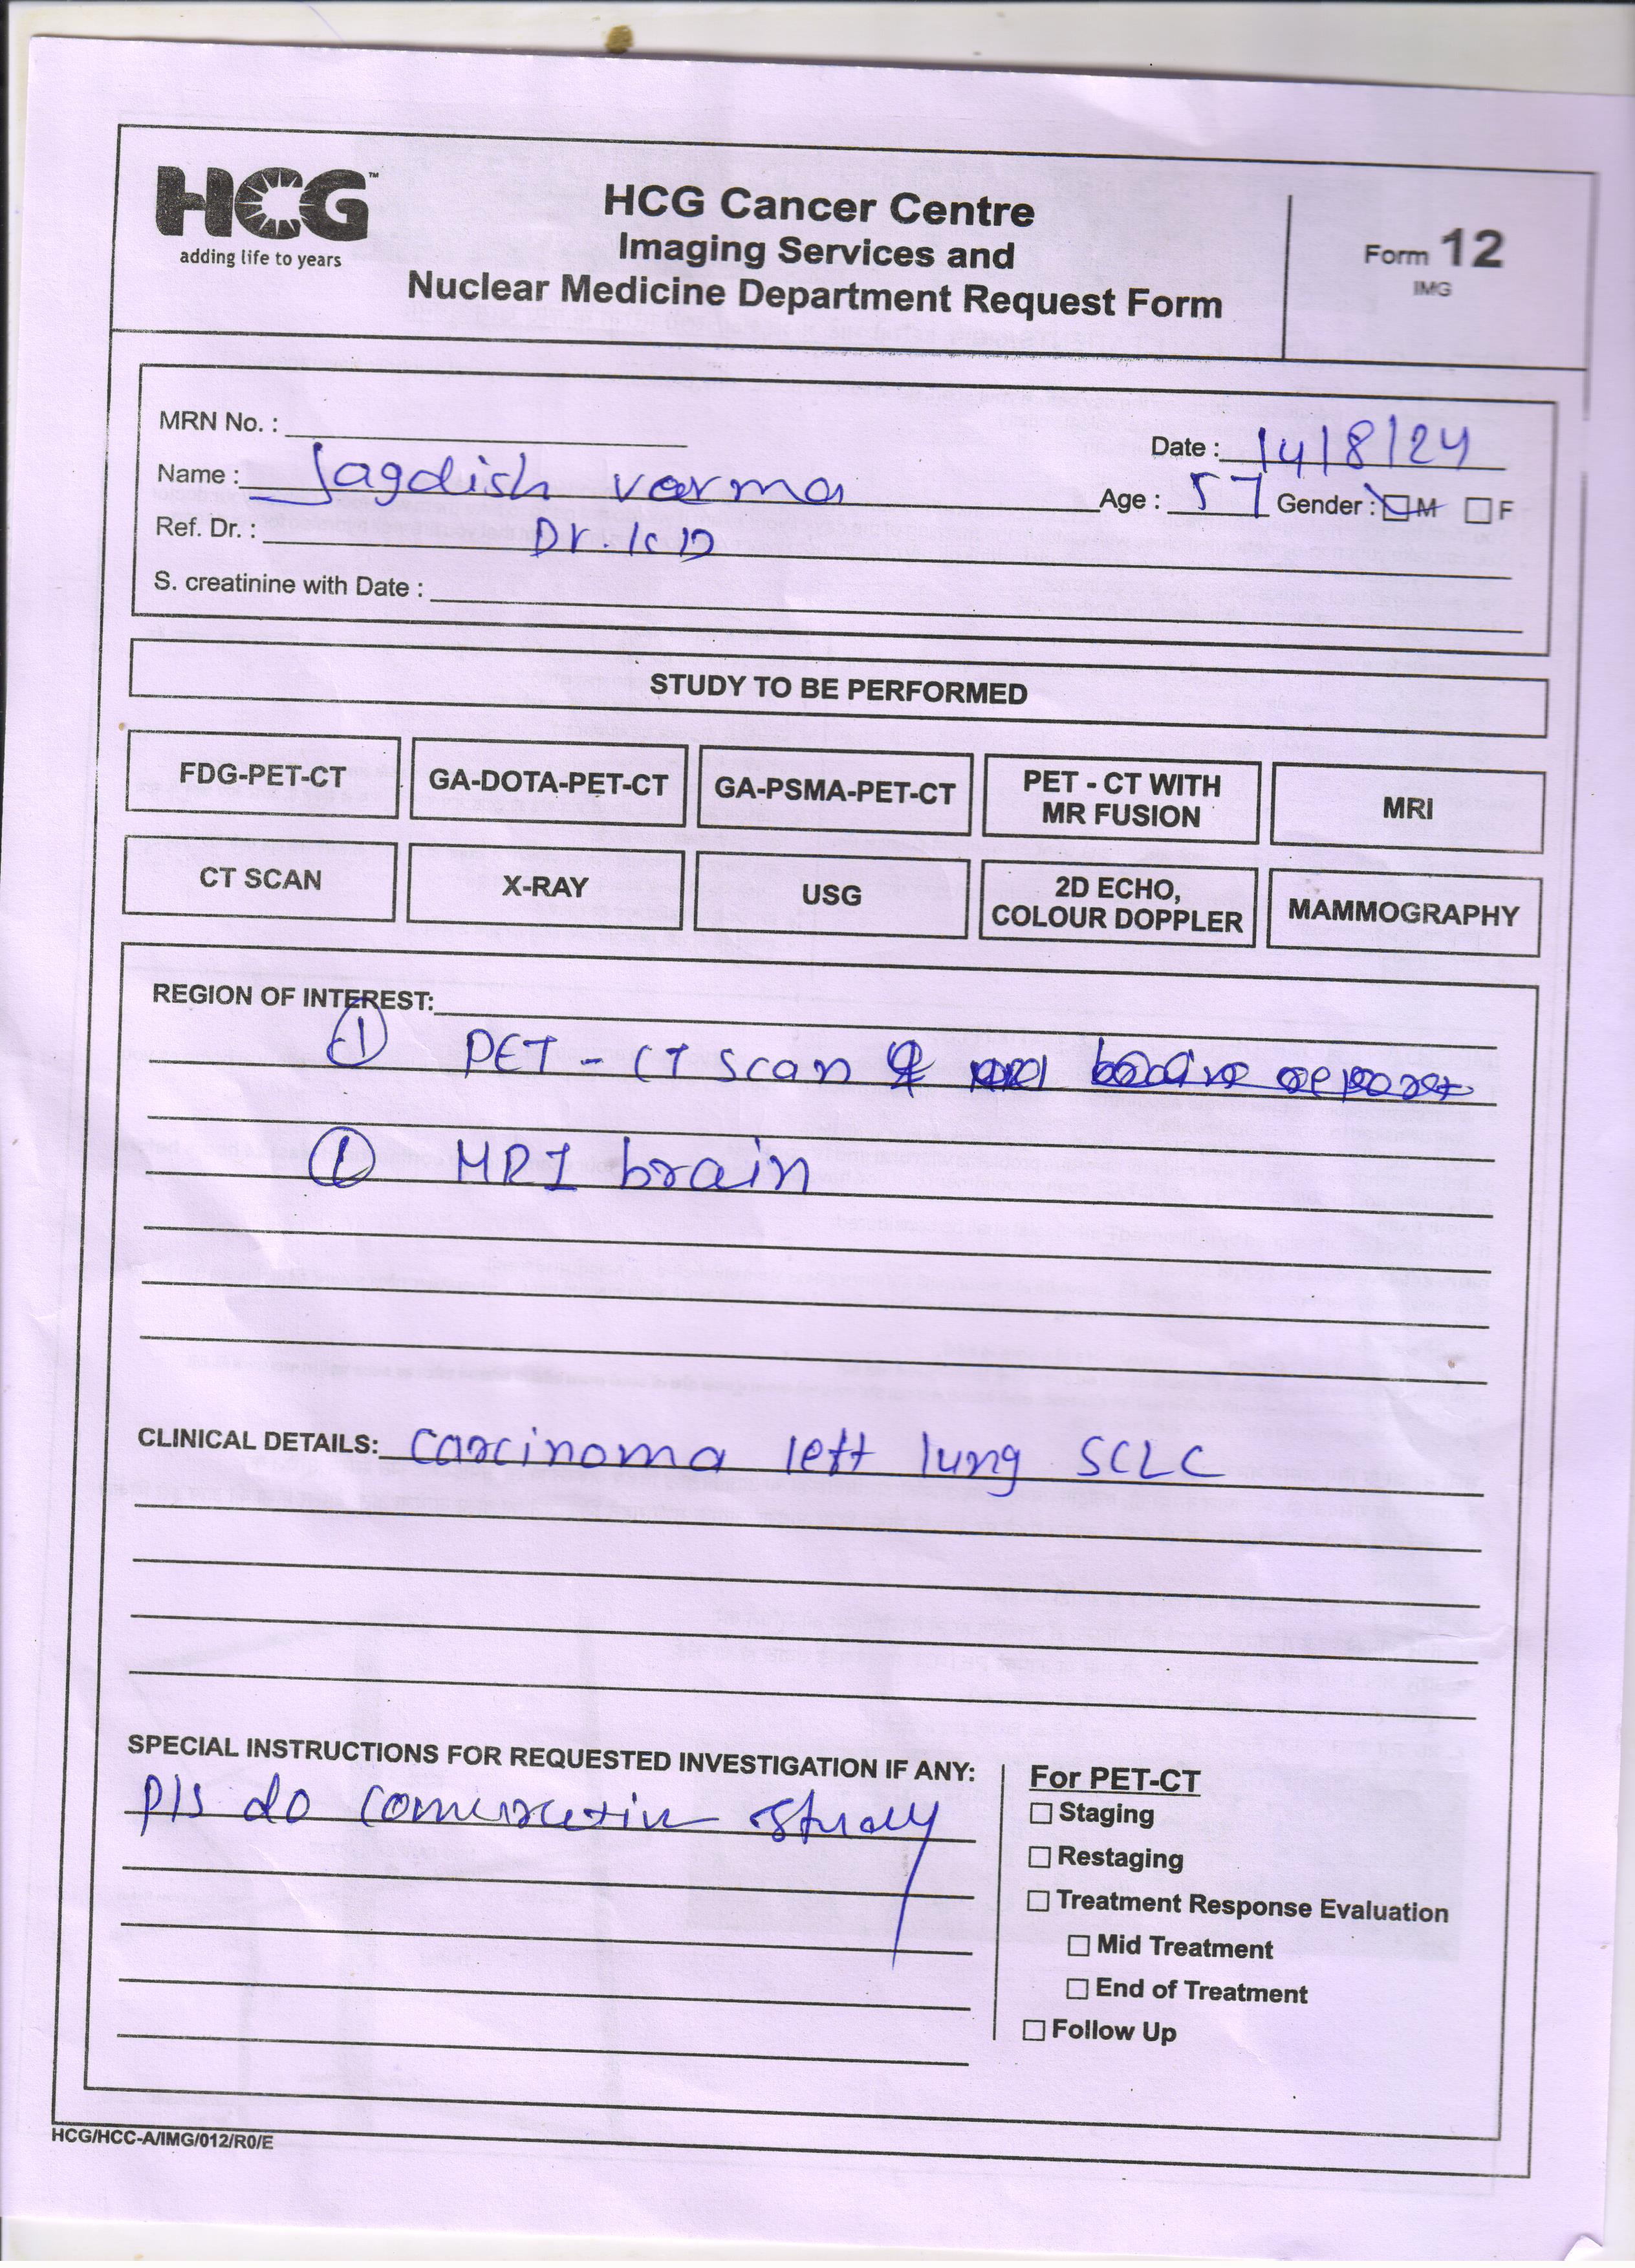 HCG™
adding life to years
HCG Cancer Centre
Imaging Services and
Nuclear Medicine Department Request Form
Form 12
IMG
MRN No. :
Date : 14/8/24
Name : Jagdish varma
Age : 57 Gender : M F
Ref. Dr. : Dr. KD
S. creatinine with Date :
STUDY TO BE PERFORMED
FDG-PET-CT GA-DOTA-PET-CT GA-PSMA-PET-CT PET - CT WITH MR FUSION MRI
CT SCAN X-RAY USG 2D ECHO, COLOUR DOPPLER MAMMOGRAPHY
REGION OF INTEREST:
① PET - CT scan
① MRI brain
CLINICAL DETAILS: carcinoma left lung SCLC
SPECIAL INSTRUCTIONS FOR REQUESTED INVESTIGATION IF ANY:
pls do study
For PET-CT
Staging
Restaging
Treatment Response Evaluation
Mid Treatment
End of Treatment
Follow Up
HCG/HCC-A/IMG/012/R0/E